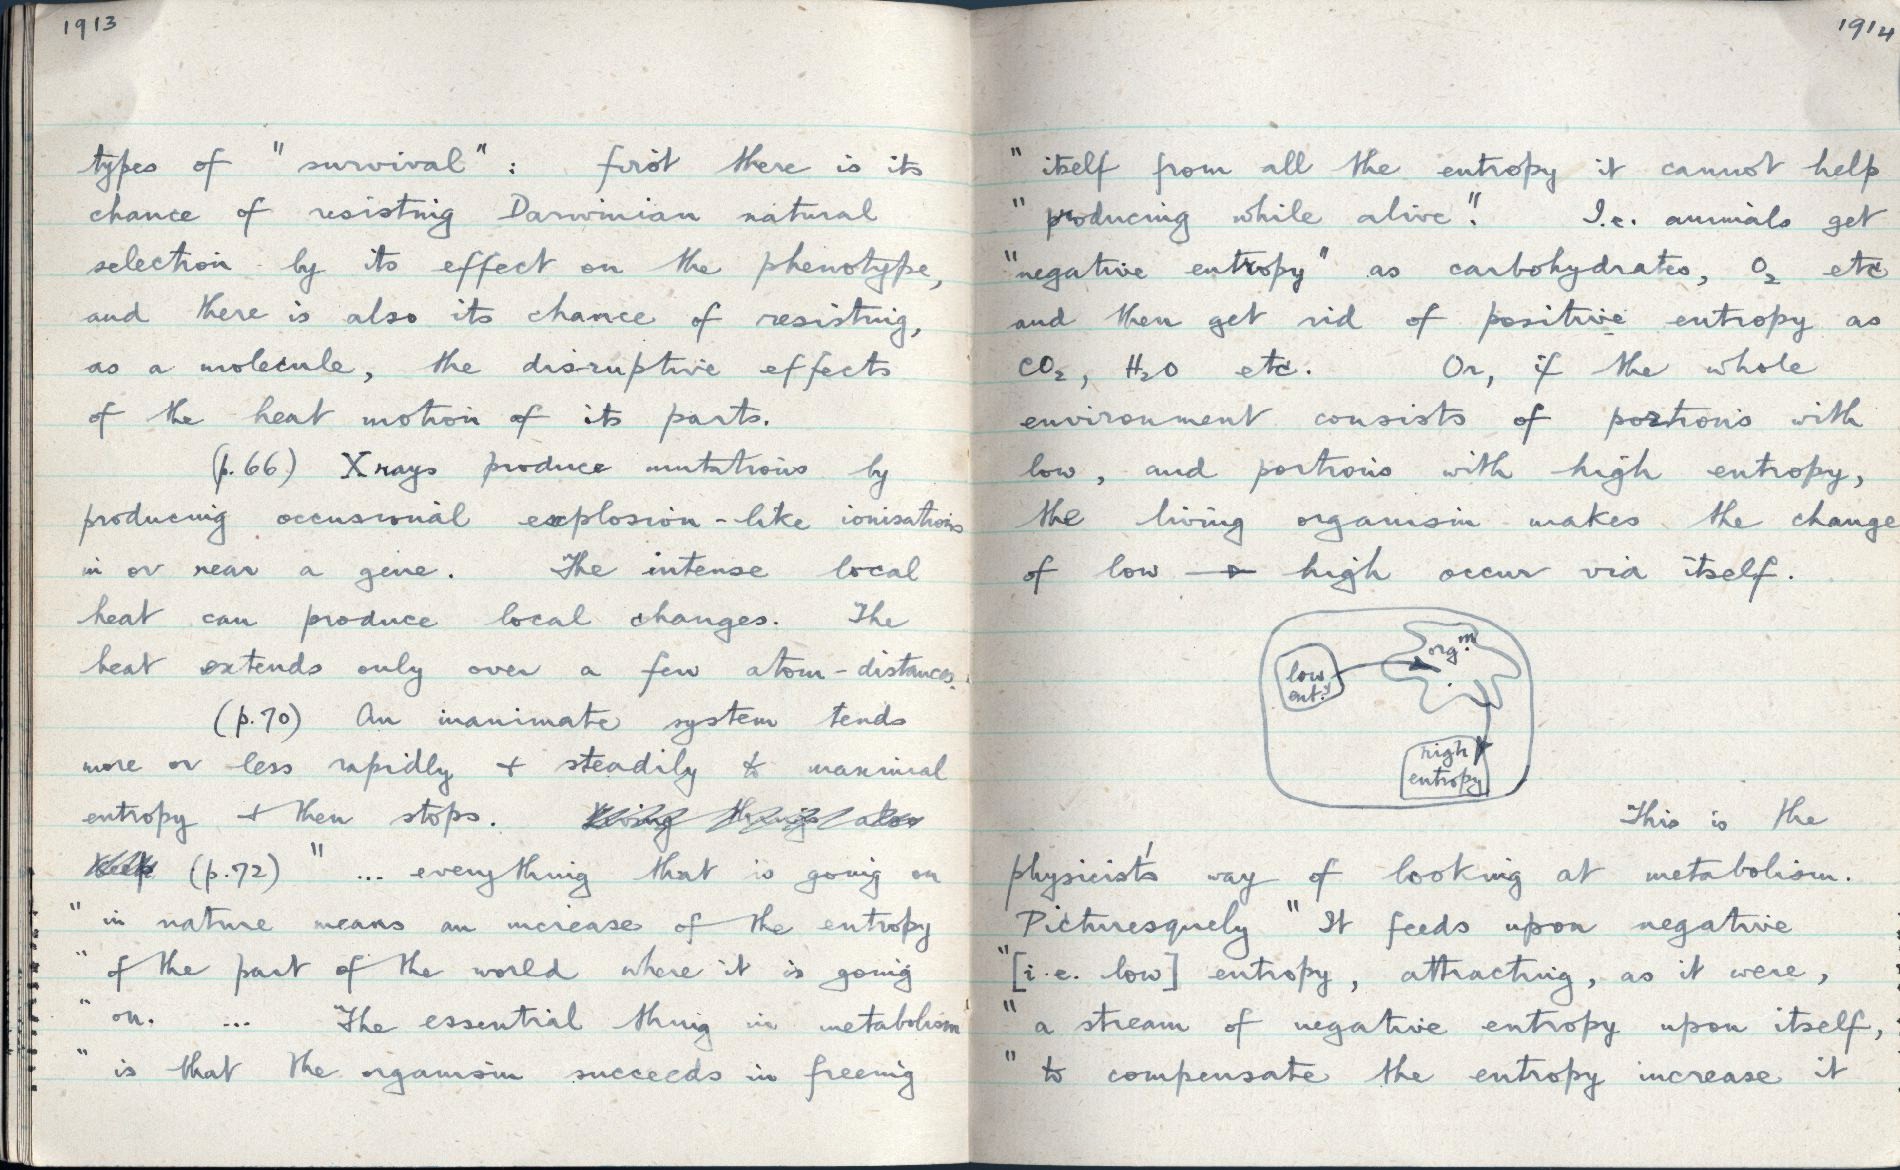 1913
types of "survival" : first there is its
chance of resisting Darwinian natural
selection by its effect on the phenotype,
and there is also its chance of resisting,
as a molecule, the disruptive effects
of the heat motion of its parts.
(p.66) X rays produce mutations by
producing occusional explosion-like ionisations
in or near a gene. The intense local
heat can produce local changes. The
heat extends only over a few atom-distances.
(p.70) An inanimate system tends
more or less rapidly + steadily to maximal
entropy + then stops. living things also
keep (p.72) " ... everything that is going on
" in nature means an increase of the entropy
" of the part of the world where it is going
" on. ... The essential thing in metabolism
" is that the organism succeeds in freeing
1914
" itself from all the entropy it cannot help
" producing while alive". I.e. animals get
"negative entropy" as carbohydrates, O₂ etc
and then get rid of positive entropy as
CO₂, H₂O etc. Or, if the whole
environment consists of portions with
low, and portions with high entropy,
the living organism makes the change
of low → high occur via itself.
org.ᵐ
low
ent.ʸ
high
entropy
This is the
physicist's way of looking at metabolism.
Picturesquely "It feeds upon negative
"[i.e. low] entropy, attracting, as it were,
" a stream of negative entropy upon itself,
" to compensate the entropy increase it